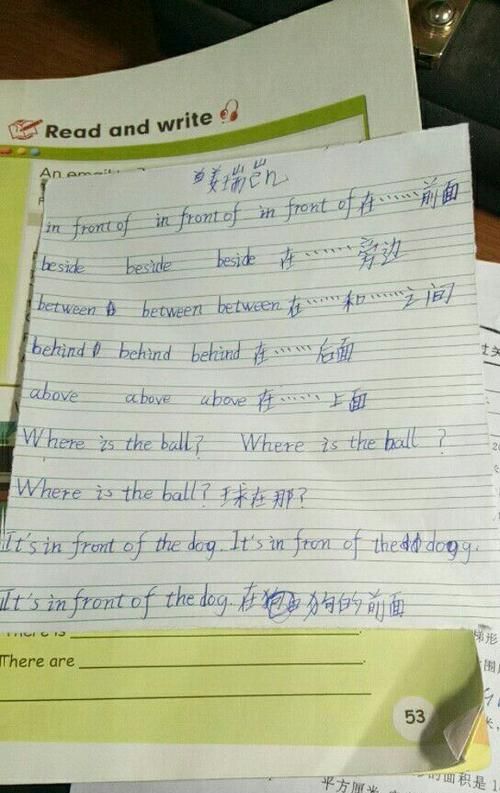 Read and write
An email
in front of in front of in front of 在……前面
beside beside beside 在……旁边
between between between 在……和……之间
behind behind behind 在……后面
above above above 在……上面
Where is the ball? Where is the ball ?
Where is the ball? 球在那?
It's in front of the dog. It's in fron of the dogg.
It's in front of the dog. 在狗的前面
There is
There are
53
梯形
平方厘米
的面积是 1